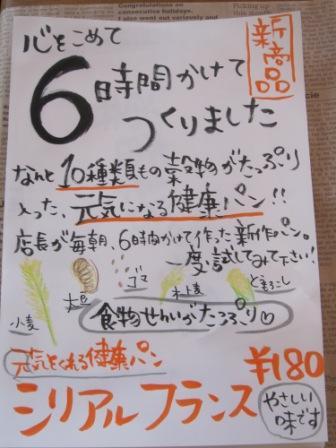 新商品
心をこめて
6時間かけて
つくりました
なんと10種類もの穀物がたっぷり
入った、元気になる健康パン!!
店長が毎朝、6時間かけて作った新作パン。
一度試してみて下さい!
小麦
大豆
ゴマ
とうもろこし
食物せんいがたっぷり♡
元気をくれる健康パン
¥180
シリアルフランス
やさしい
味です